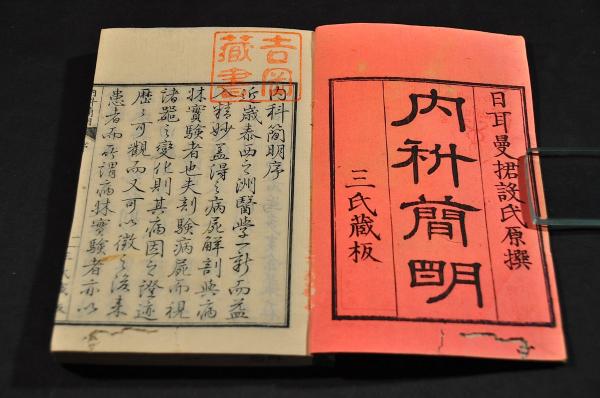 日耳曼捃設氏原撰
内科簡明
三氏蔵板
吉岡
蔵書
内科簡明序
近歳泰西之洲醫學一新而益
入精妙蓋得之病屍解剖與病
牀實驗者也夫剖驗病屍而視
諸器之變化則其病因之證迹
歴々可觀而又可以徴之後来
患者而所謂病牀實驗者亦以